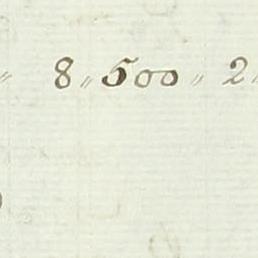 " 8 " 500 " 2